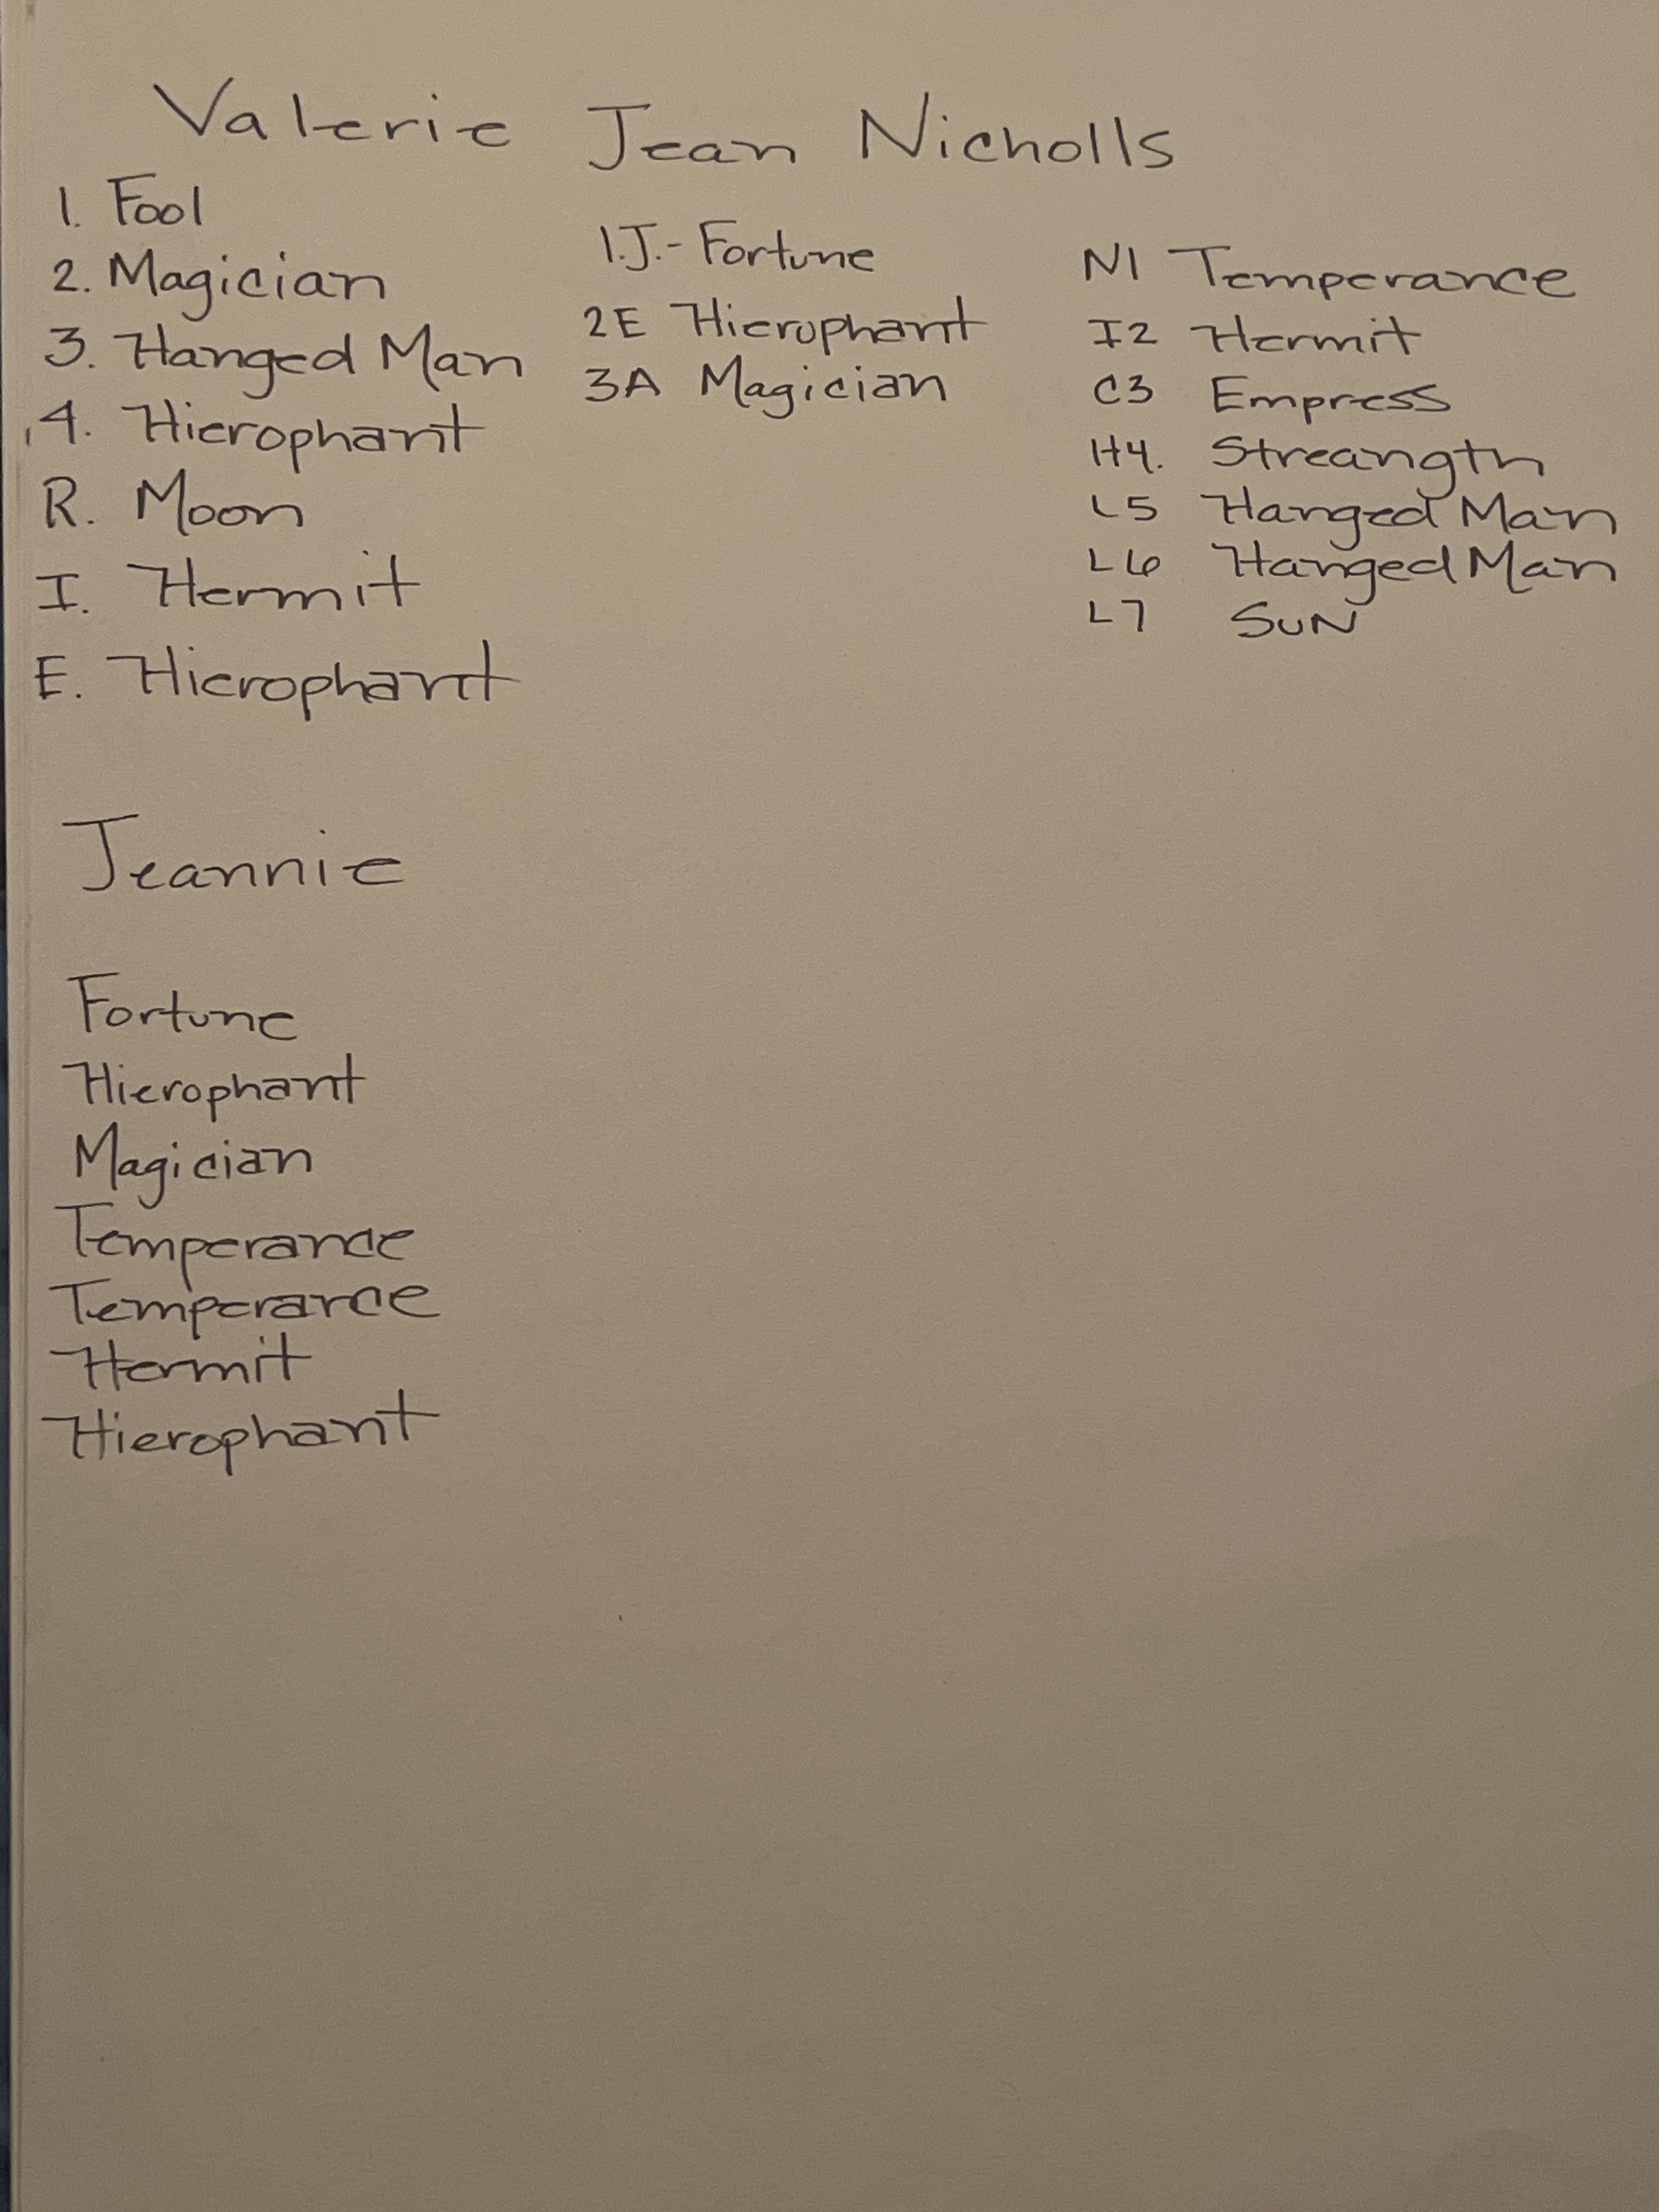 Valerie Jean Nicholls
1. Fool
2. Magician
3. Hanged Man
4. Hierophant
R. Moon
I. Hermit
E. Hierophant
1.J.- Fortune
2E Hierophant
3A Magician
N1 Temperance
I2 Hermit
C3 Empress
H4. Streangth
L5 Hanged Man
L6 Hanged Man
L7 SUN
Jeannie
Fortune
Hierophant
Magician
Temperance
Temperance
Hermit
Hierophant